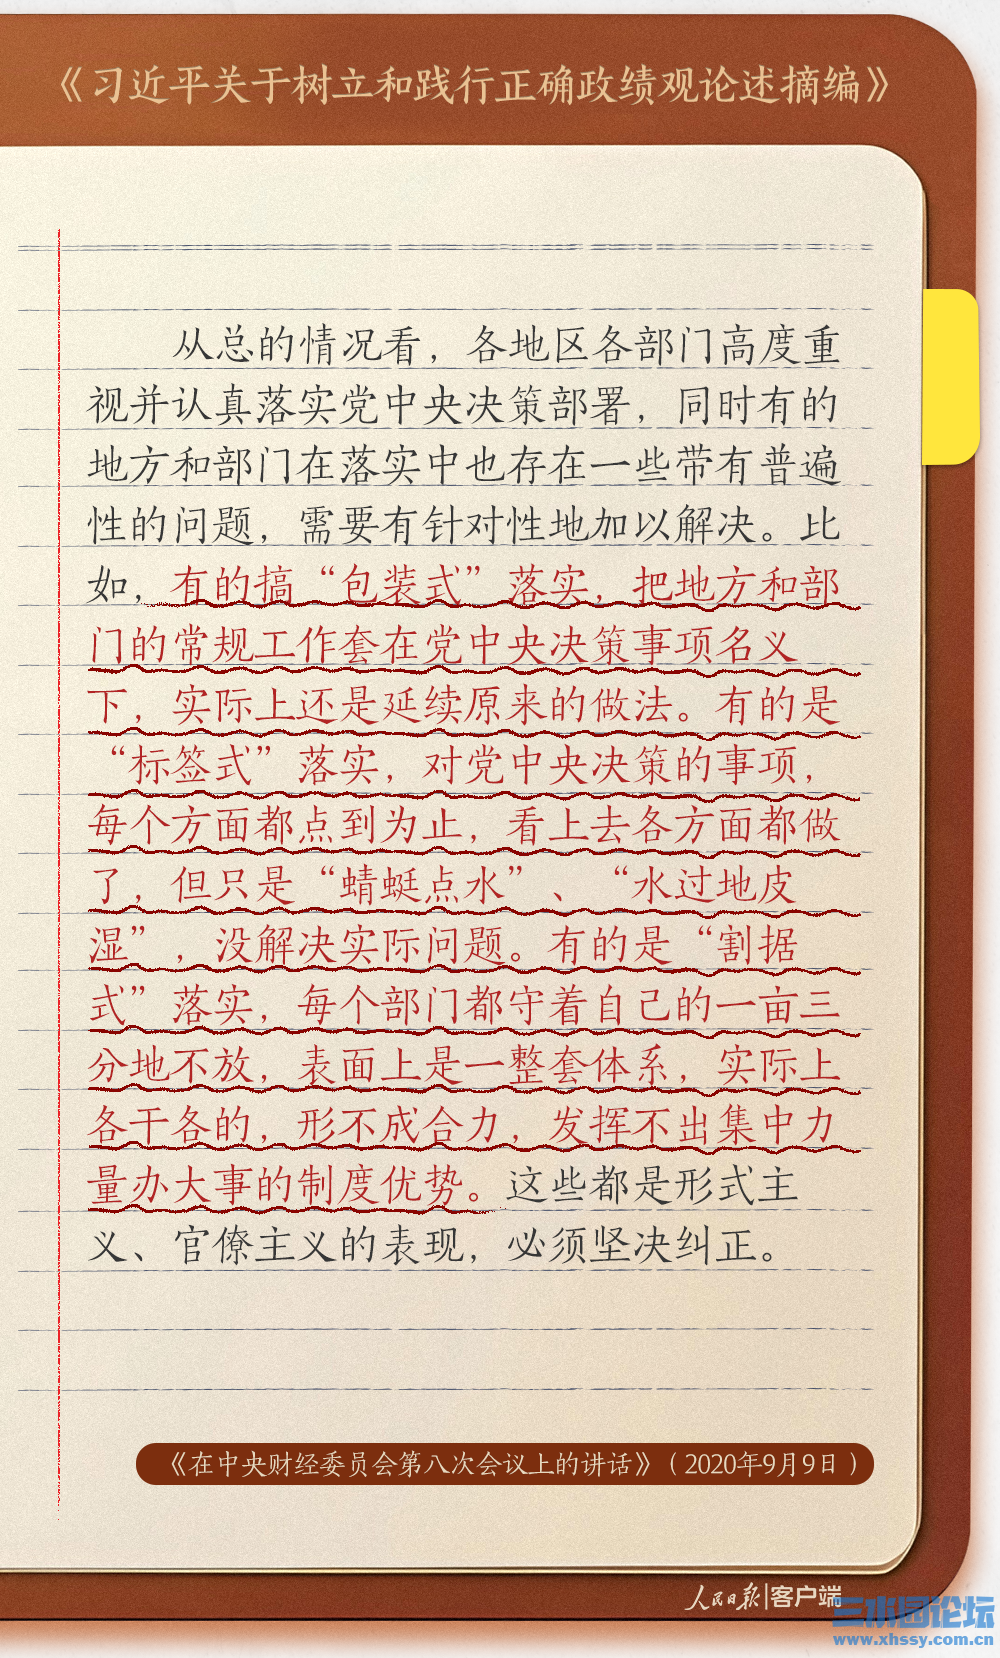 《习近平关于树立和践行正确政绩观论述摘编》
从总的情况看，各地区各部门高度重
视并认真落实党中央决策部署，同时有的
地方和部门在落实中也存在一些带有普遍
性的问题，需要有针对性地加以解决。比
如，有的搞“包装式”落实，把地方和部
门的常规工作套在党中央决策事项名义
下，实际上还是延续原来的做法。有的是
“标签式”落实，对党中央决策的事项，
每个方面都点到为止，看上去各方面都做
了，但只是“蜻蜓点水”、“水过地皮
湿”，没解决实际问题。有的是“割据
式”落实，每个部门都守着自己的一亩三
分地不放，表面上是一整套体系，实际上
各干各的，形不成合力，发挥不出集中力
量办大事的制度优势。这些都是形式主
义、官僚主义的表现，必须坚决纠正。
《在中央财经委员会第八次会议上的讲话》（2020年9月9日）
人民日报|客户端
三水园论坛
www.xhssy.com.cn